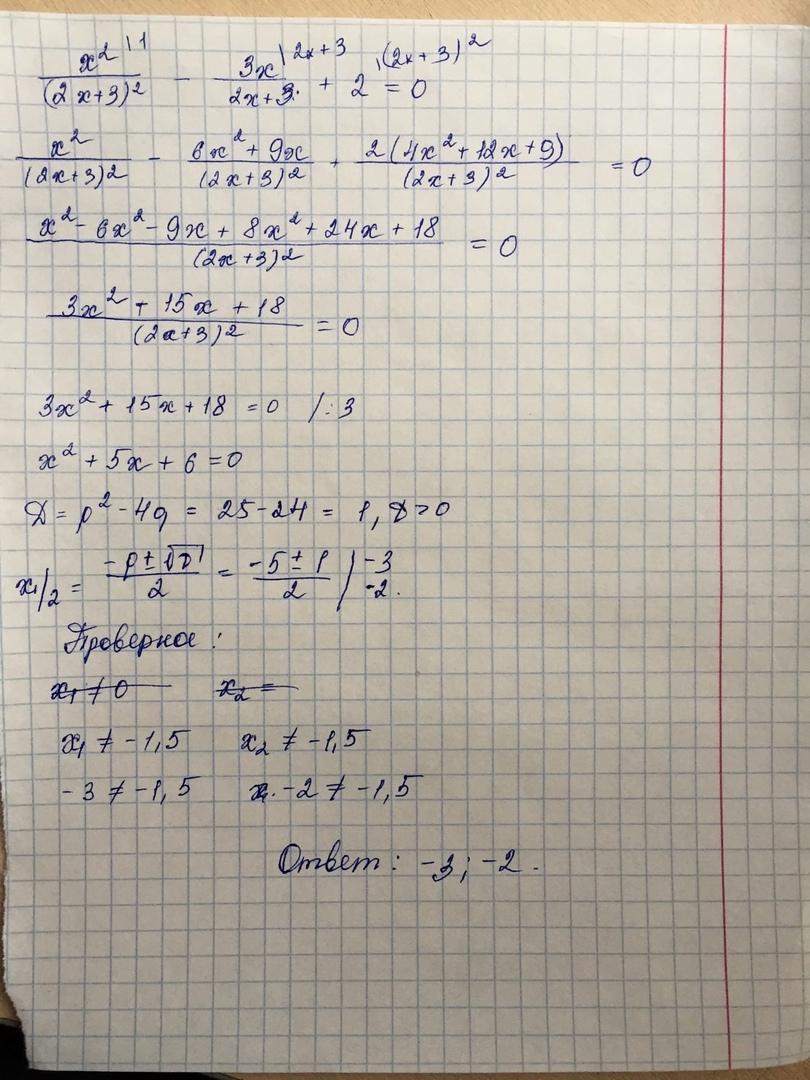 x² |1 / (2x+3)² - 3x |2x+3 / 2x+3 + 2 |(2x+3)² = 0
x² / (2x+3)² - 6x² + 9x / (2x+3)² + 2(4x² + 12x + 9) / (2x+3)² = 0
x² - 6x² - 9x + 8x² + 24x + 18 / (2x+3)² = 0
3x² + 15x + 18 / (2x+3)² = 0
3x² + 15x + 18 = 0 /:3
x² + 5x + 6 = 0
D = p² - 4q = 25 - 24 = 1, D > 0
x₁/₂ = -p ± √D / 2 = -5 ± 1 / 2 | -3 -2.
Проверка:
x₁ ≠ 0 x₂ =
x₁ ≠ -1,5 x₂ ≠ -1,5
-3 ≠ -1,5 -2 ≠ -1,5
Ответ: -3; -2.